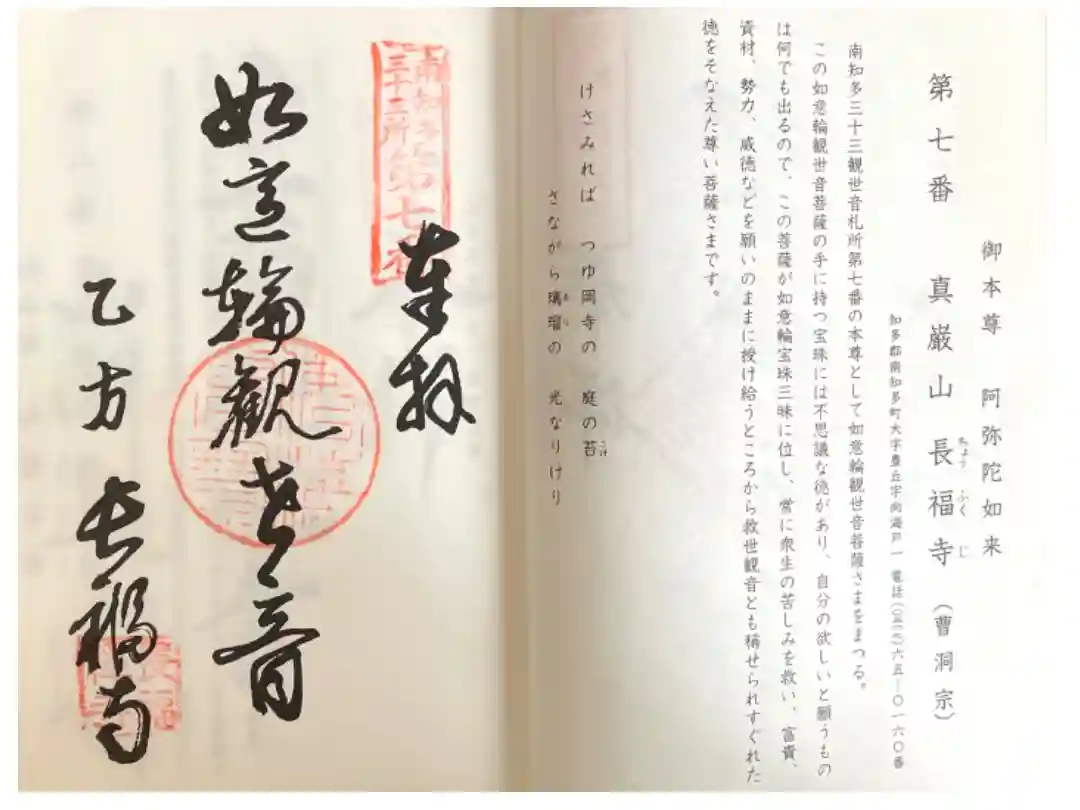 御本尊 阿弥陀如来
第七番 真巌山 長福寺(曹洞宗)
ちょう ふく じ
知多郡南知多町大字豊丘字向海戸一 電話(〇五六九)六五―〇一六〇番
南知多三十三観世音札所第七番の本尊として如意輪観世音菩薩さまをまつる。
この如意輪観世音菩薩の手に持つ宝珠には不思議な徳があり、自分の欲しいと願うもの
は何でも出るので、この菩薩が如意輪宝珠三昧に位し、常に衆生の苦しみを救い、富貴、
資材、勢力、威徳などを願いのままに授け給うところから救世観音とも稱せられすぐれた
徳をそなえた尊い菩薩さまです。
けさみれば つゆ岡寺の 庭の苔
こけ
さながら璃瑠の 光なりけり
るり
南知多
三十三所
第七番
奉拝
如意輪観世音
乙方 長福寺